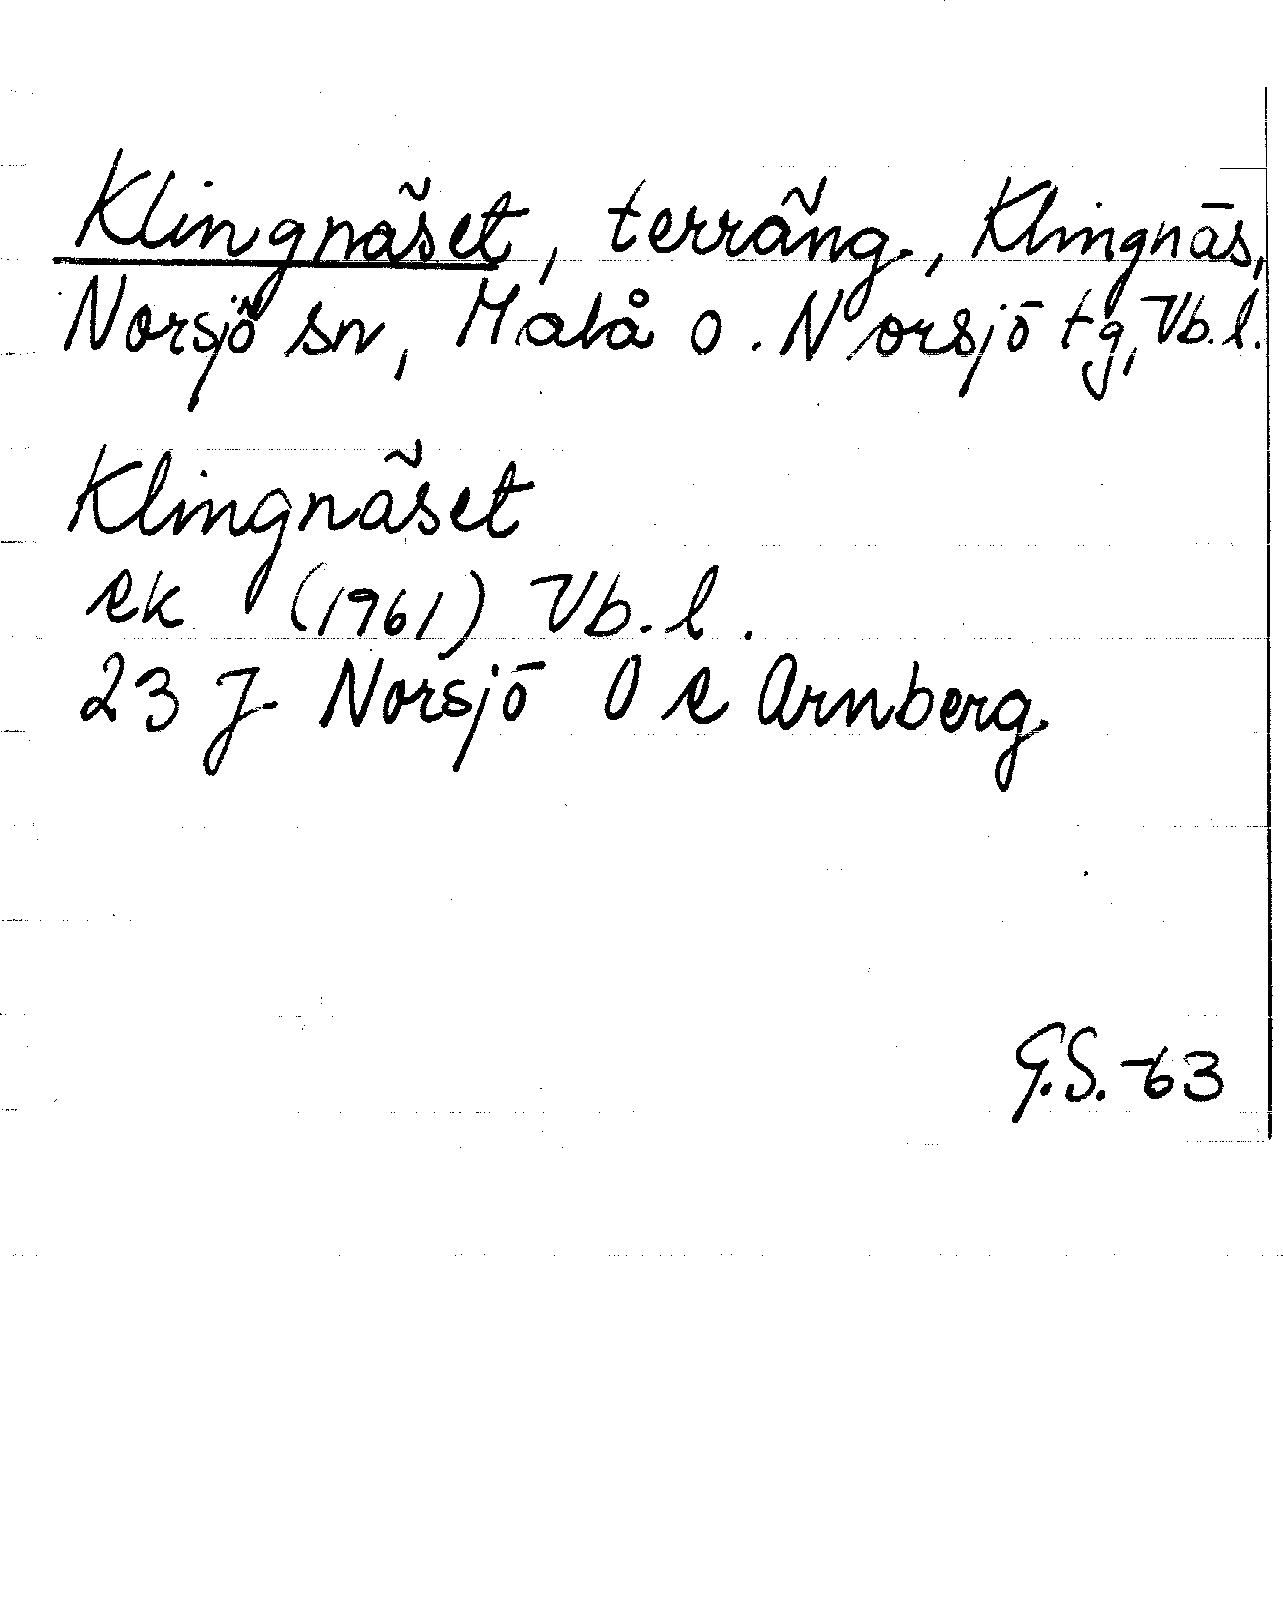 Klingnäset, terräng, Klingnäs,
Norsjö sn, Malå o. Norsjö tg, Vb. l.
Klingnäset
ek (1961) Vb. l.
23 J Norsjö O e Arnberg
G.S. -63